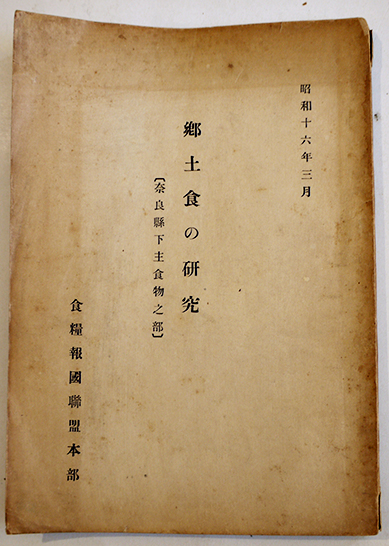 昭和十六年三月
郷土食の研究
〔奈良縣下主食物之部〕
食糧報國聯盟本部